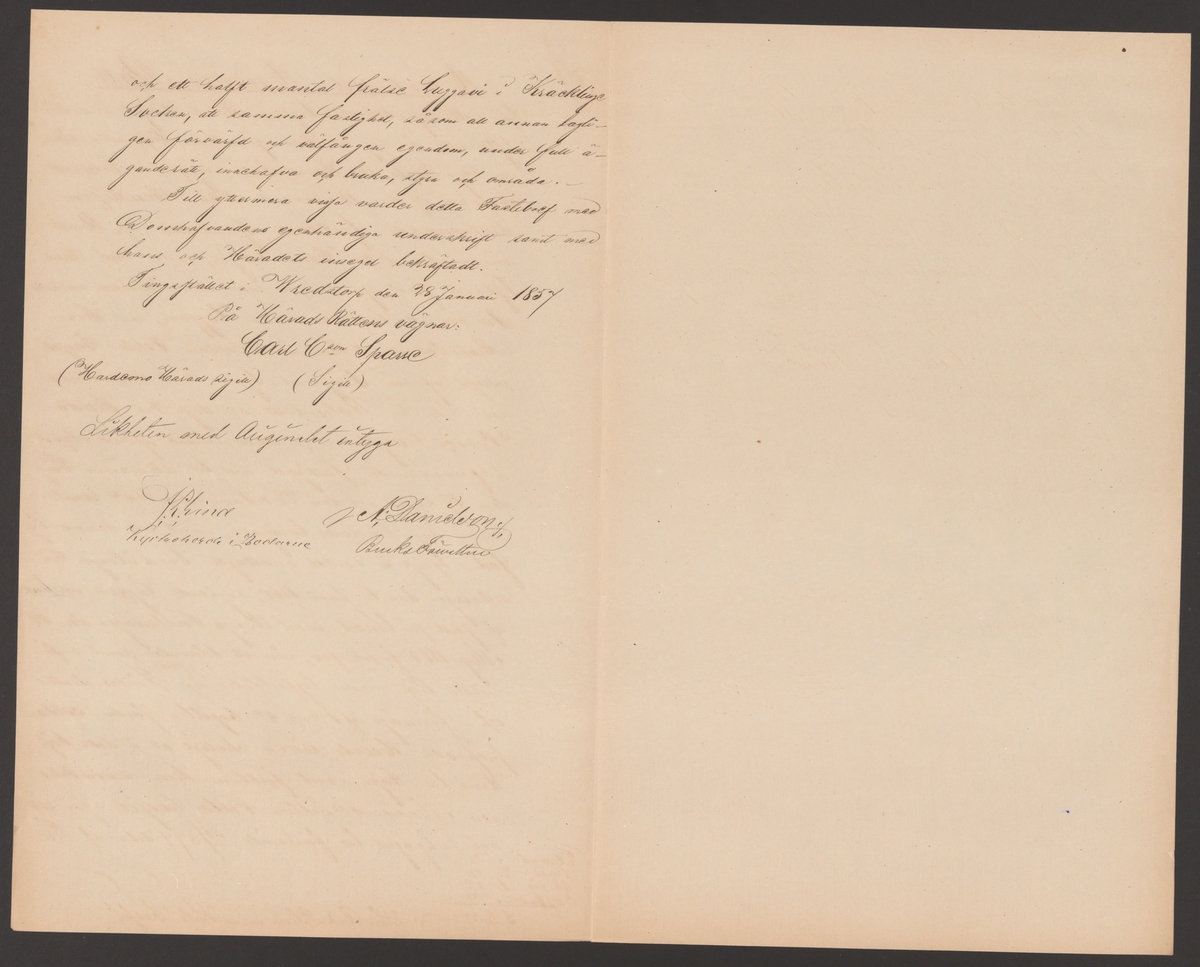 och ett halft mantal frälse Luggavi i Kräcklinge
Socken, att samma fastighet, såsom all annan lagli-
gen förvärfd och välfången egendom, under full ä-
ganderätt, innehafva och bruka, styra och områda. –
Till yttermera visja varder detta Fastebref med
Domhafvandens egenhändiga underskrift samt med
hans och Häradets insegel bekräftadt.
Tingsstället i Wredstorp den 28 Januari 1857
På Härads Rättens vägnar:
Carl C son Sparre
(Hardemo Härads Sigill) (Sigill)
Likheten med Originalet intyga
N. Danielson
Kyrkoherde i
Bruks Förvaltare